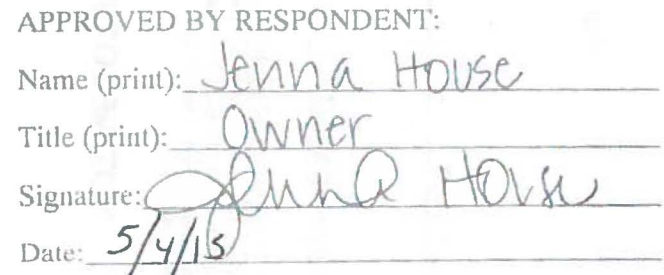 APPROVED BY RESPONDENT:
Name (print): Jenna House
Title (print): Owner
Signature: Jenna House
Date: 5/4/15